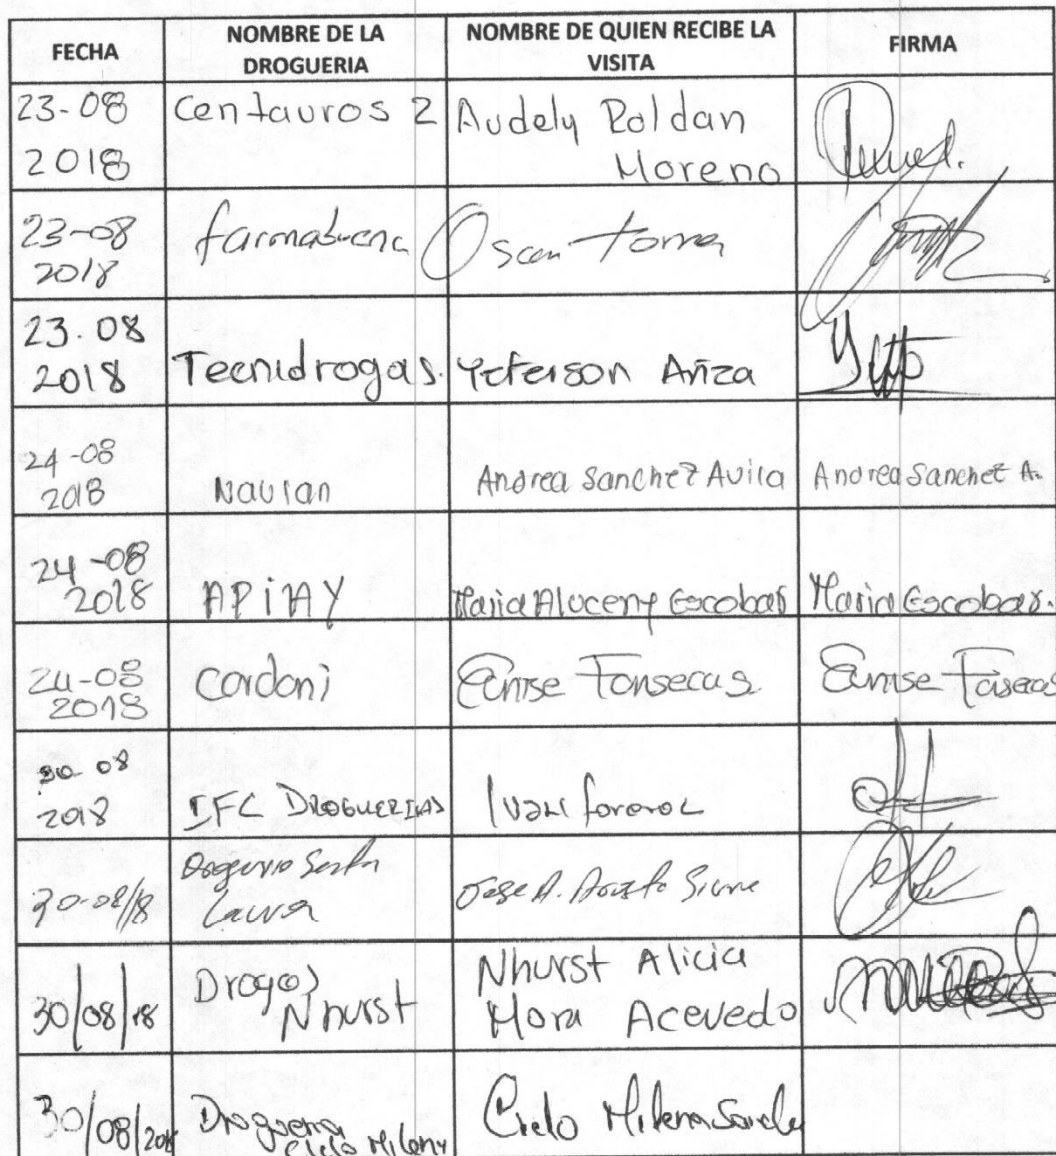 FECHA
NOMBRE DE LA
DROGUERIA
NOMBRE DE QUIEN RECIBE LA
VISITA
FIRMA
23-08
2018
Centauros 2
Audely Roldan
Moreno
23-08
2018
farmabuena
Oscar
23.08
2018
Tecnidrogas.
Yeferson Ariza
24-08
2018
Navian
Andrea Sanchez Avila
Andrea Sanchez A.
24-08
2018
APIAY
Maria Aluceny Escobar
Maria Escobar.
24-08
2018
Cardoni
Fonsecas
30 08
2018
IFC DROGUERIAS
Ivan
30-08/18
Laura
Jose A.
30/08/18
Drogas
Nhurst
Nhurst Alicia
Mora Acevedo
30/08/2018
Drogueria
Cielo Mileny
Cielo Milena